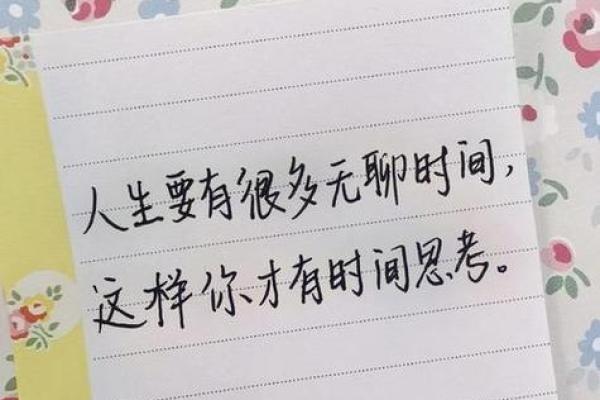 人生要有很多无聊时间，
这样你才有时间思考。